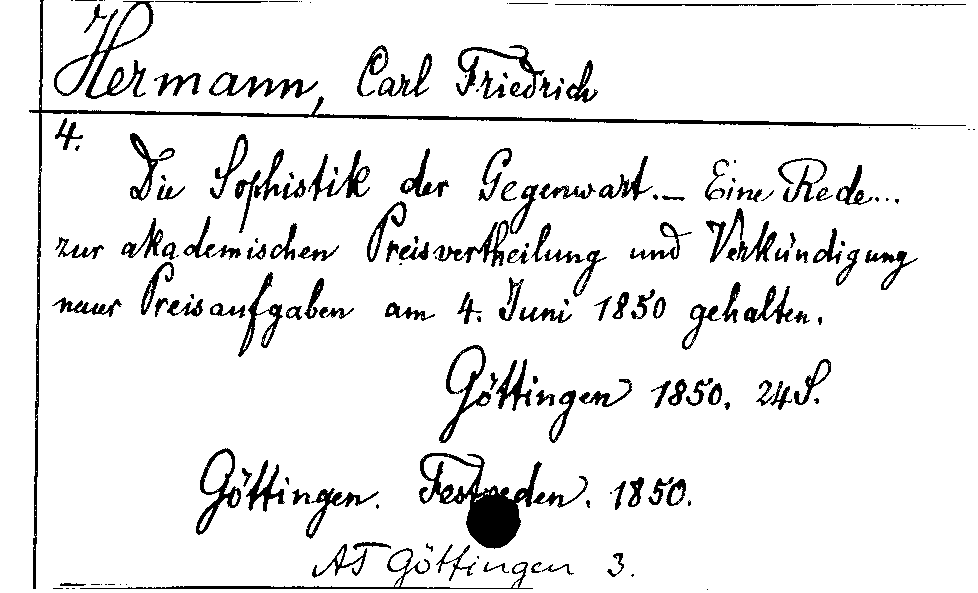 Hermann, Carl Friedrich
4.
Die Sophistik der Gegenwart.— Eine Rede...
zur akademischen Preisvertheilung und Verkündigung
neuer Preisaufgaben am 4. Juni 1850 gehalten.
Göttingen 1850. 24 S.
Göttingen. Festreden. 1850.
AT Göttingen 3.